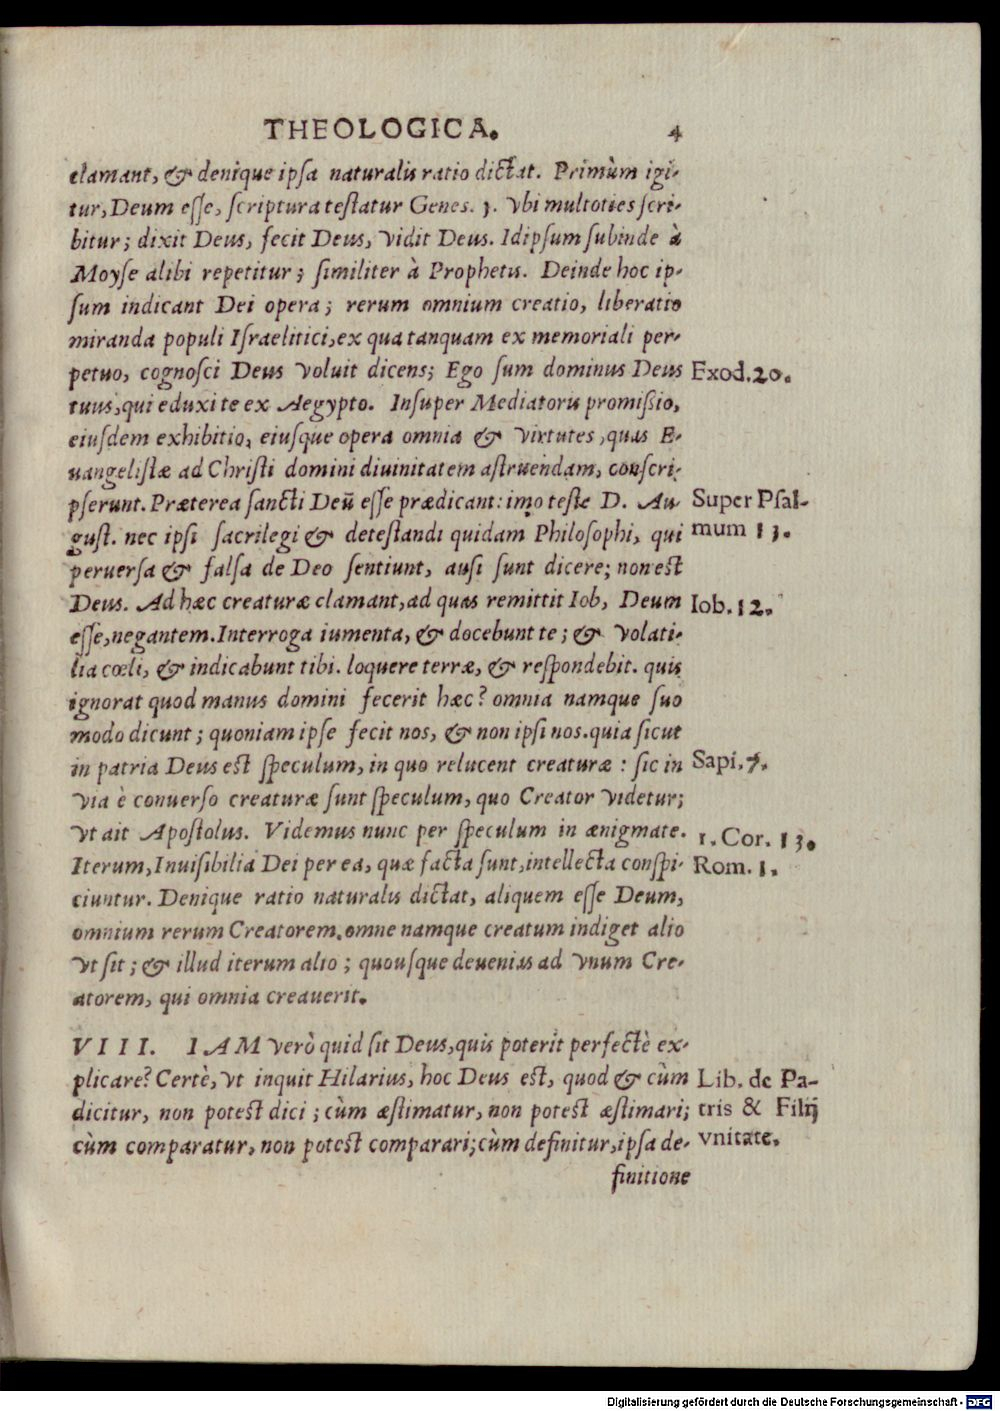 THEOLOGICA. 4
clamant, & denique ipsa naturalis ratio dictat. Primùm igi-
tur, Deum esse, scriptura testatur Genes. 1. vbi multoties scri-
bitur; dixit Deus, fecit Deus, vidit Deus. Idipsum subinde à
Moyse alibi repetitur; similiter à Prophetis. Deinde hoc ip-
sum indicant Dei opera; rerum omnium creatio, liberatio
miranda populi Israelitici, ex qua tanquam ex memoriali per-
petuo, cognosci Deus voluit dicens; Ego sum dominus Deus
Exod. 20.
tuus, qui eduxi te ex Aegypto. Insuper Mediatoris promißio,
eiusdem exhibitio, eiusque opera omnia & virtutes, quas E-
uangelistæ ad Christi domini diuinitatem astruendam, conscri-
pserunt. Præterea sancti Deũ esse prædicant: imo teste D. Au-
Super Psal-
gust. nec ipsi sacrilegi & detestandi quidam Philosophi, qui
mum 13.
peruersa & falsa de Deo sentiunt, ausi sunt dicere; non est
Deus. Ad hæc creaturæ clamant, ad quas remittit Iob, Deum
Iob. 12.
esse, negantem. Interroga iumenta, & docebunt te; & volati-
lia cœli, & indicabunt tibi. loquere terræ, & respondebit. quis
ignorat quod manus domini fecerit hæc? omnia namque suo
modo dicunt; quoniam ipse fecit nos, & non ipsi nos. quia sicut
in patria Deus est speculum, in quo relucent creaturæ: sic in
Sapi. 7.
via è conuerso creaturæ sunt speculum, quo Creator videtur;
vt ait Apostolus. Videmus nunc per speculum in ænigmate.
1. Cor. 13.
Iterum, Inuisibilia Dei per ea, quæ facta sunt, intellecta conspi-
Rom. 1.
ciuntur. Denique ratio naturalis dictat, aliquem esse Deum,
omnium rerum Creatorem. omne namque creatum indiget alio
vt sit; & illud iterum alio; quousque deuenias ad vnum Cre-
atorem, qui omnia creauerit.
VIII. IAM verò quid sit Deus, quis poterit perfectè ex-
plicare? Certè, vt inquit Hilarius, hoc Deus est, quod & cùm
Lib. de Pa-
dicitur, non potest dici; cùm æstimatur, non potest æstimari;
tris & Filij
cùm comparatur, non potest comparari; cùm definitur, ipsa de-
vnitate.
finitione
Digitalisierung gefördert durch die Deutsche Forschungsgemeinschaft - DFG